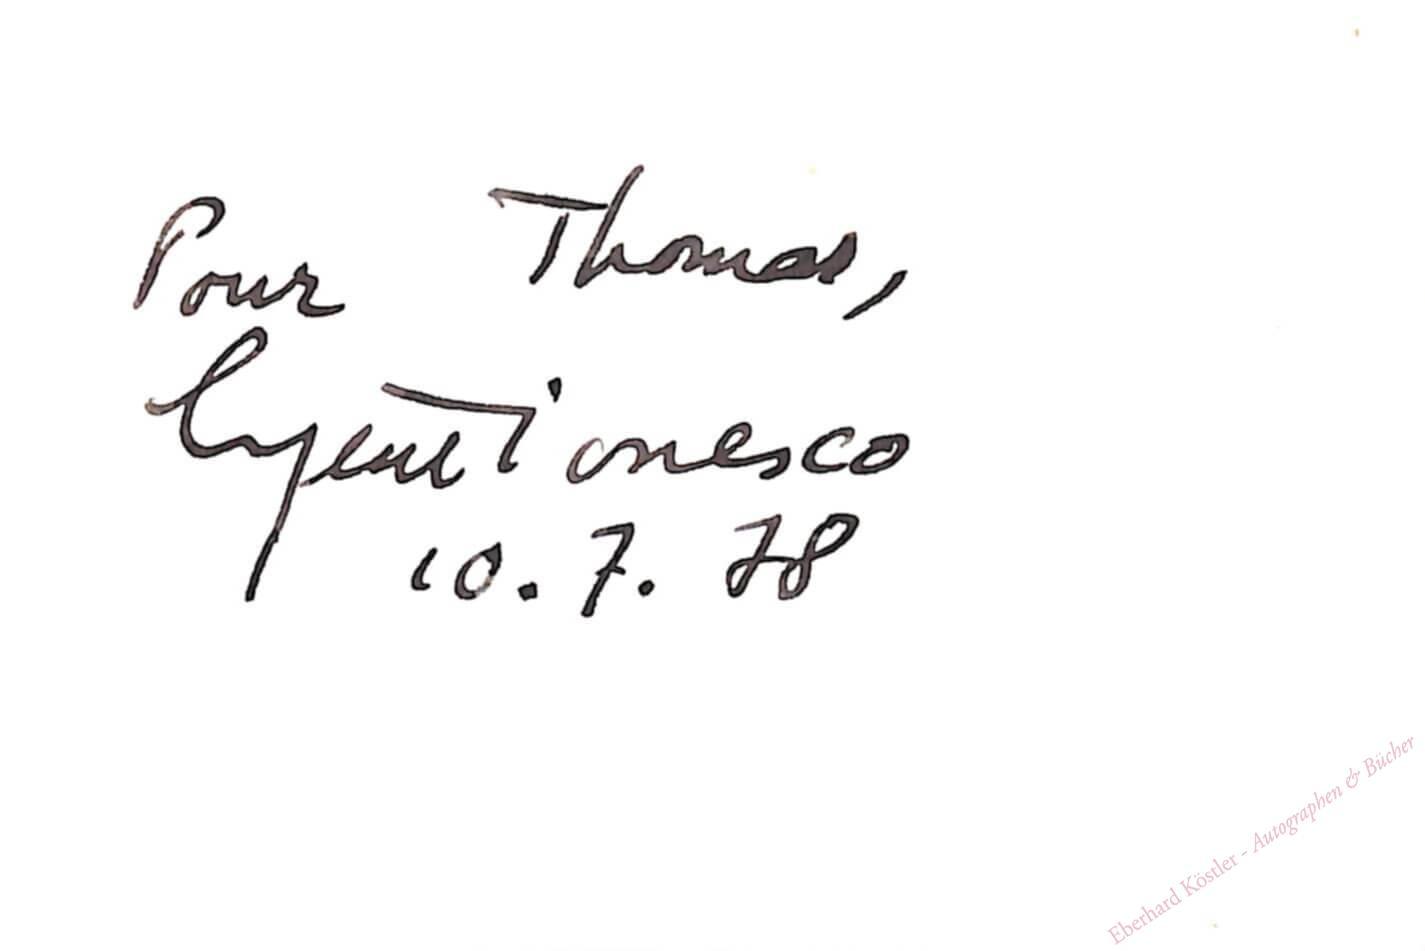 Pour Thomas,
Eugene Ionesco
10.7.78
Eberhard Köstler - Autographen & Bücher